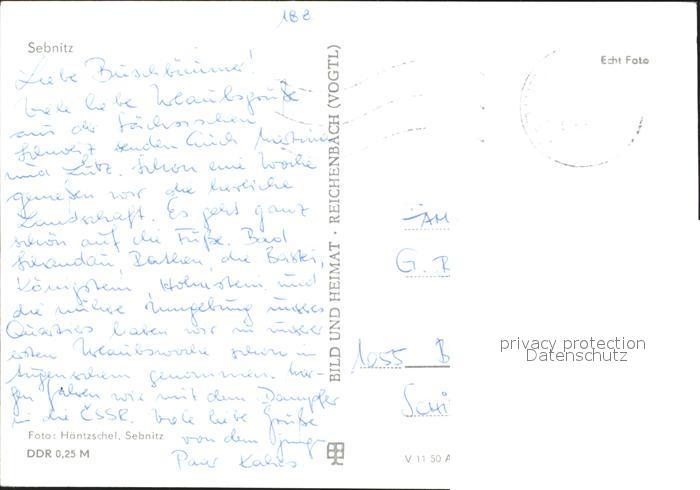 188
Sebnitz
Echt Foto
Liebe
Viele liebe Urlaubsgrüße
aus der Sächsischen
Schweiz senden Euch
und Lutz. Schon eine Woche
genießen wir die herrliche
Landschaft. Es geht ganz
schön auf die Füße. Bad
Schandau, Rathen, die Bastei,
Königstein, Hohnstein und
die nähere Umgebung unseres
Quartiers haben wir in unserer
ersten Urlaubswoche schon in
Augenschein genommen. Mor-
gen fahren wir mit dem Dampfer
in die ČSSR. Viele liebe Grüße
von dem jungen
Paar
Foto: Häntzschel, Sebnitz
DDR 0,25 M
BILD UND HEIMAT · REICHENBACH (VOGTL)
G.
1055 B
Schi
V 11 50 A
privacy protection
Datenschutz